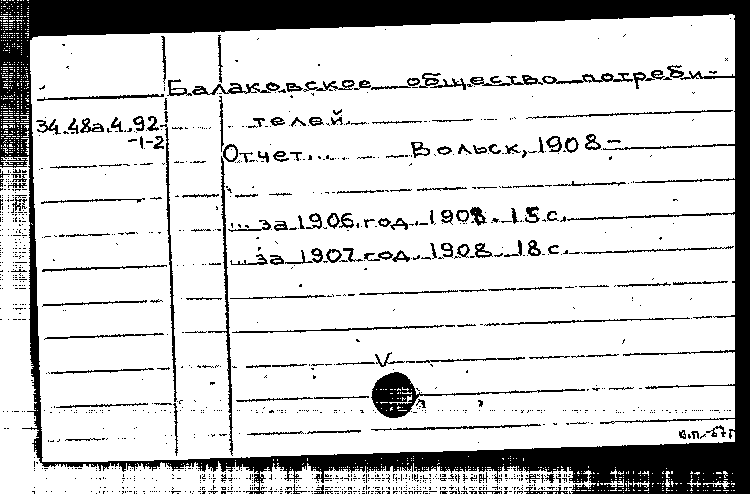 Балаковское общество потреби-
34.48а.4.92- телей.
-1-2
Отчет... Вольск, 1908-
... за 1906.год. 1908. 15 с.
... за 1907 год. 1908. 18 с.
V